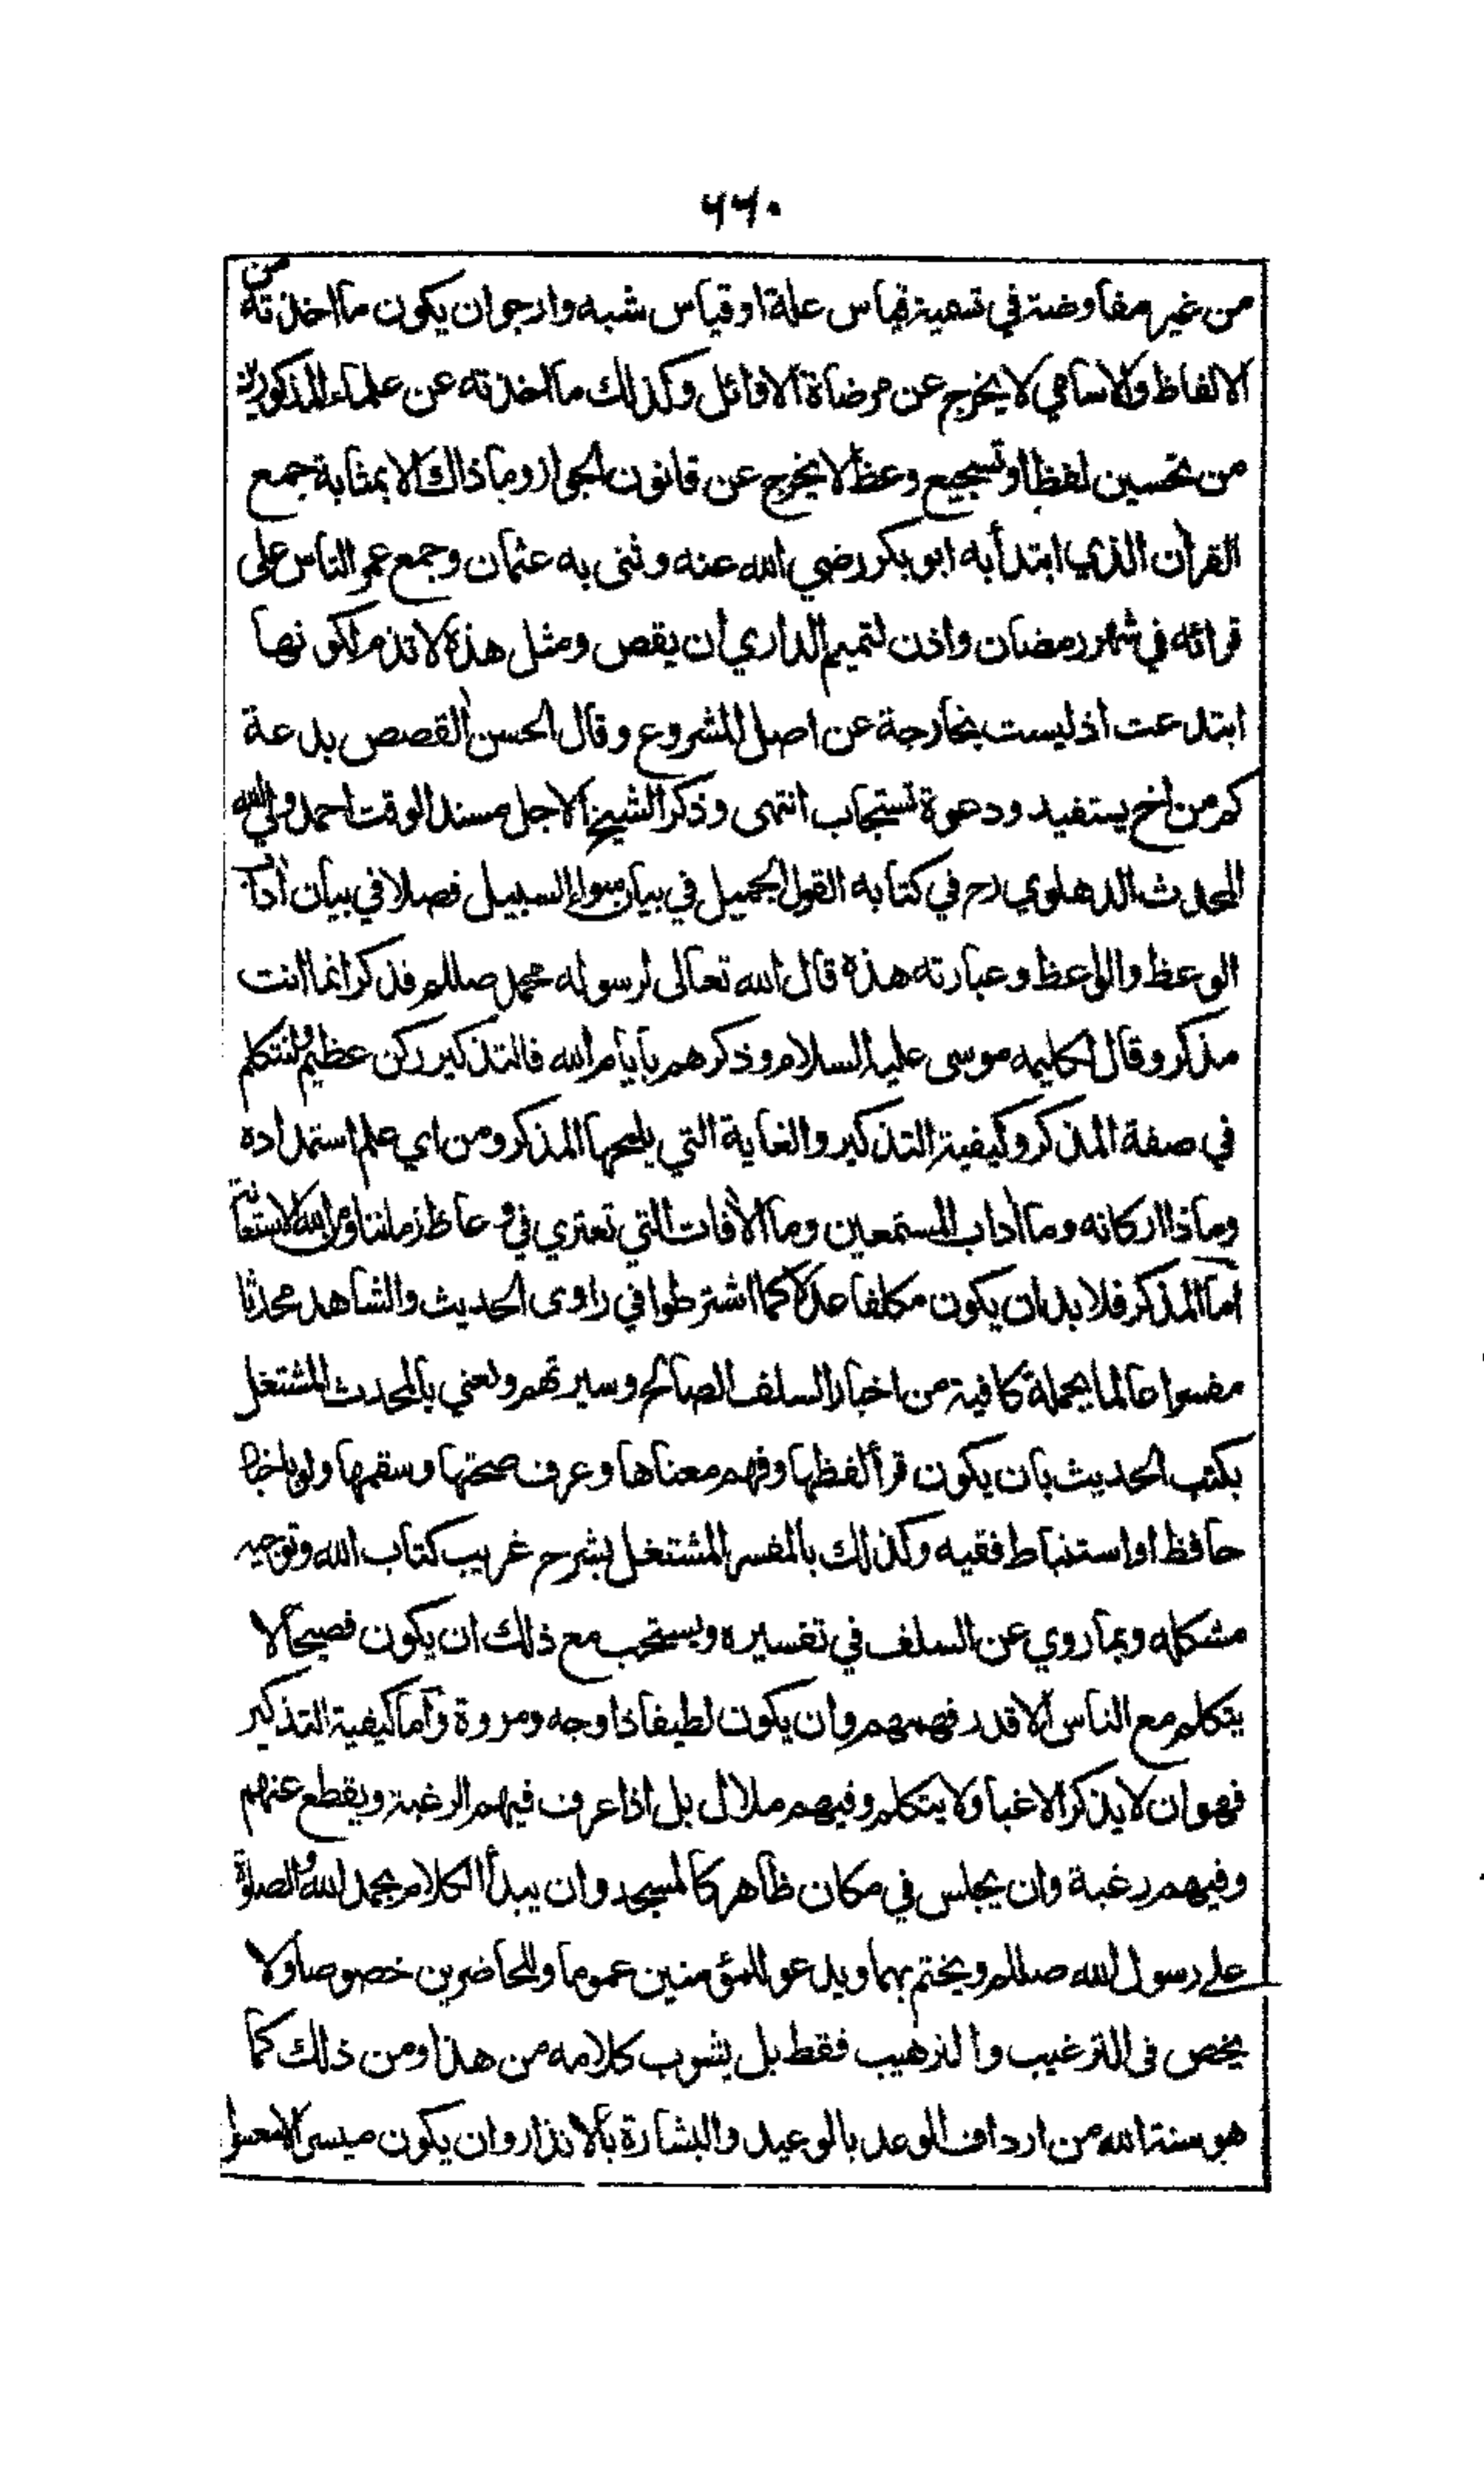 ٦٦٠
من غير مفاوضة في تسمية قياس علة او قياس شبه وارجو ان يكون ما اخذته من
الالفاظ والاسامي لا يخرج عن مرضاة الاوائل وكذلك ما اخذته عن علماء المذكورين
من تحسين لفظ او تسجيع وعظ لا يخرج عن قانون الجواز وما ذاك الا بمثابة جمع
القرآن الذي ابتدأ به ابو بكر رضي الله عنه وثنى به عثمان وجمع عمر الناس على
قرائه في شهر رمضان واذن لتميم الداري ان يقص ومثل هذه لا تذم لكونها
ابتدعت اذ ليست بخارجة عن اصل المشروع وقال الحسن القصص بدعة
كم من اخ يستفيد ودعوة تستجاب انتهى وذكر الشيخ الاجل مسند الوقت احمد ولي الله
المحدث الدهلوي رح في كتابه القول الجميل في بيان سواء السبيل فصلا في بيان آداب
الوعظ والواعظ وعبارته هذه قال الله تعالى لرسوله محمد صللم فذكر انما انت
مذكر وقال لكليمه موسى عليه السلام وذكرهم بايام الله فالتذكير ركن عظيم ولنتكلم
في صفة المذكر وكيفية التذكير والغاية التي يلمحها المذكر ومن اي علم استمداده
وماذا اركانه وما آداب المستمعين وما الآفات التي تعتري في وعاظ زماننا ومن الله الاستعانة
اما المذكر فلا بد ان يكون مكلفا عدلا كما اشترطوا في راوى الحديث والشاهد محدثا
مفسرا عالما بجملة كافية من اخبار السلف الصالح وسيرتهم ونعني بالمحدث المشتغل
بكتب الحديث بان يكون قرأ لفظها وفهم معناها وعرف صحتها وسقمها ولو باخبار
حافظ او استنباط فقيه وكذلك بالمفسر المشتغل بشرح غريب كتاب الله وتوجيه
مشكله وبما روي عن السلف في تفسيره ويستحب مع ذلك ان يكون فصيحا لا
يتكلم مع الناس الا قدر فهمهم وان يكون لطيفا ذا وجه ومروة وآما كيفية التذكير
فهو ان لا يذكر الا غبا ولا يتكلم وفيهم ملال بل اذا عرف فيهم الرغبة ويقطع عنهم
وفيهم رغبة وان يجلس في مكان ظاهر كالمسجد وان يبدأ الكلام بحمد الله والصلوة
على رسول الله صللم ويختم بهما ويدعو للمؤمنين عموما وللحاضرين خصوصا ولا
يخص فى الترغيب والترهيب فقط بل يشوب كلامه من هذا ومن ذلك كما
هو سنة الله من ارداف الوعد بالوعيد والبشارة بالانذار وان يكون ميسرا لا معسرا